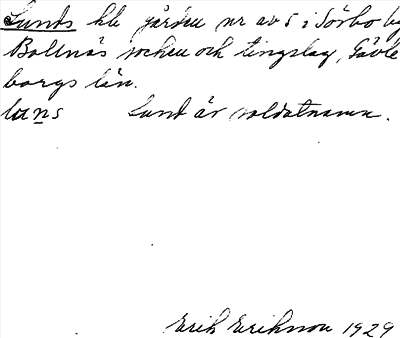 Lunds kll gården nr av 5 i Sörbo by
Bollnäs socken och tingslag, Gävle
borgs län.
luns Lund är soldatnamn.
Erik Erikson 1929